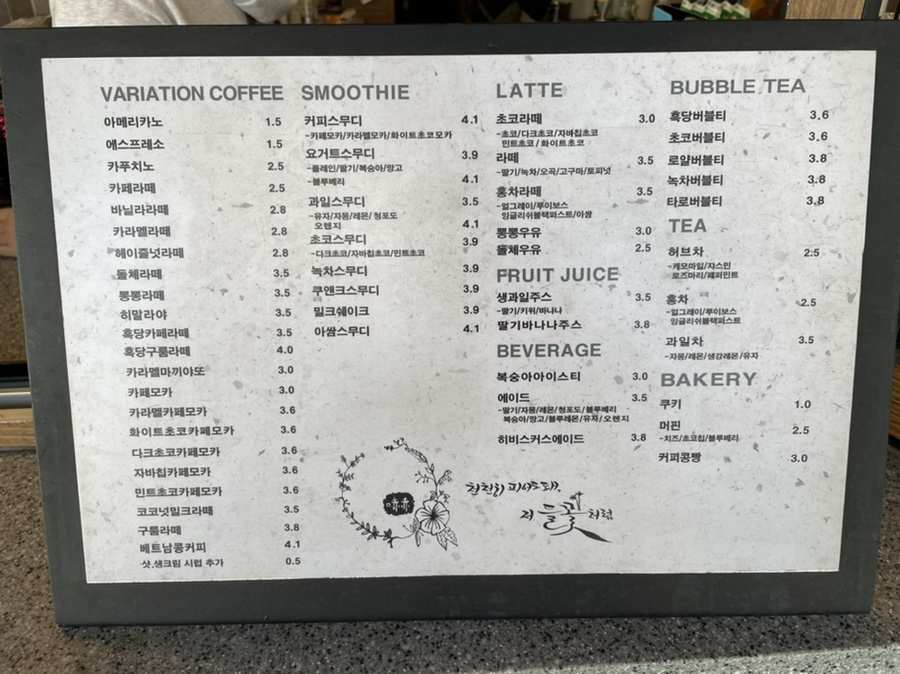 VARIATION COFFEE
아메리카노 1.5
에스프레소 1.5
카푸치노 2.5
카페라떼 2.5
바닐라라떼 2.8
카라멜라떼
헤이즐넛라떼 2.8
돌체라떼 3.5
뽕뽕라떼 3.5
히말라야 3.5
흑당카페라떼 3.5
흑당구룸라떼 4.0
카라멜마끼야또 3.0
카페모카 3.0
카라멜카페모카 3.6
화이트초코카페모카 3.6
다크초코카페모카 3.6
자바칩카페모카 3.6
민트초코카페모카 3.6
코코넛밀크라떼 3.5
구룸라떼 3.8
베트남콩커피 4.1
샷,생크림 시럽 추가 0.5
SMOOTHIE
커피스무디 4.1
-카페모카/카라멜모카/화이트초코모카
요거트스무디 3.9
-플레인/딸기/복숭아/망고
-블루베리 4.1
과일스무디 3.5
-유자/자몽/레몬/청포도
오렌지 4.1
초코스무디 3.9
-다크초코/자바칩초코/민트초코
녹차스무디 3.9
쿠앤크스무디 3.9
밀크쉐이크 3.9
아쌈스무디 4.1
LATTE
초코라떼 3.0
-초코/다크초코/자바칩초코
민트초코/화이트초코
라떼 3.5
-딸기/녹차/오곡/고구마/토피넛
홍차라떼 3.5
-얼그레이/루이보스
잉글리쉬블랙퍼스트/아쌈
뽕뽕우유 3.0
돌체우유 2.5
FRUIT JUICE
생과일주스 3.5
-딸기/키위/바나나
딸기바나나주스 3.8
BEVERAGE
복숭아아이스티 3.0
에이드 3.5
-딸기/자몽/레몬/청포도/블루베리
복숭아/망고/블루레몬/유자/오렌지
히비스커스에이드 3.8
BUBBLE TEA
흑당버블티 3.6
초코버블티 3.6
로얄버블티 3.8
녹차버블티 3.8
타로버블티 3.8
TEA
허브차 2.5
-캐모마일/쟈스민
로즈마리/페퍼민트
홍차 2.5
-얼그레이/루이보스
잉글리쉬블랙퍼스트
과일차 3.5
-자몽/레몬/생강레몬/유자
BAKERY
쿠키 1.0
머핀 2.5
-치즈/초코칩/블루베리
커피콩빵 3.0
천천히 피어도 돼.
저 들꽃처럼